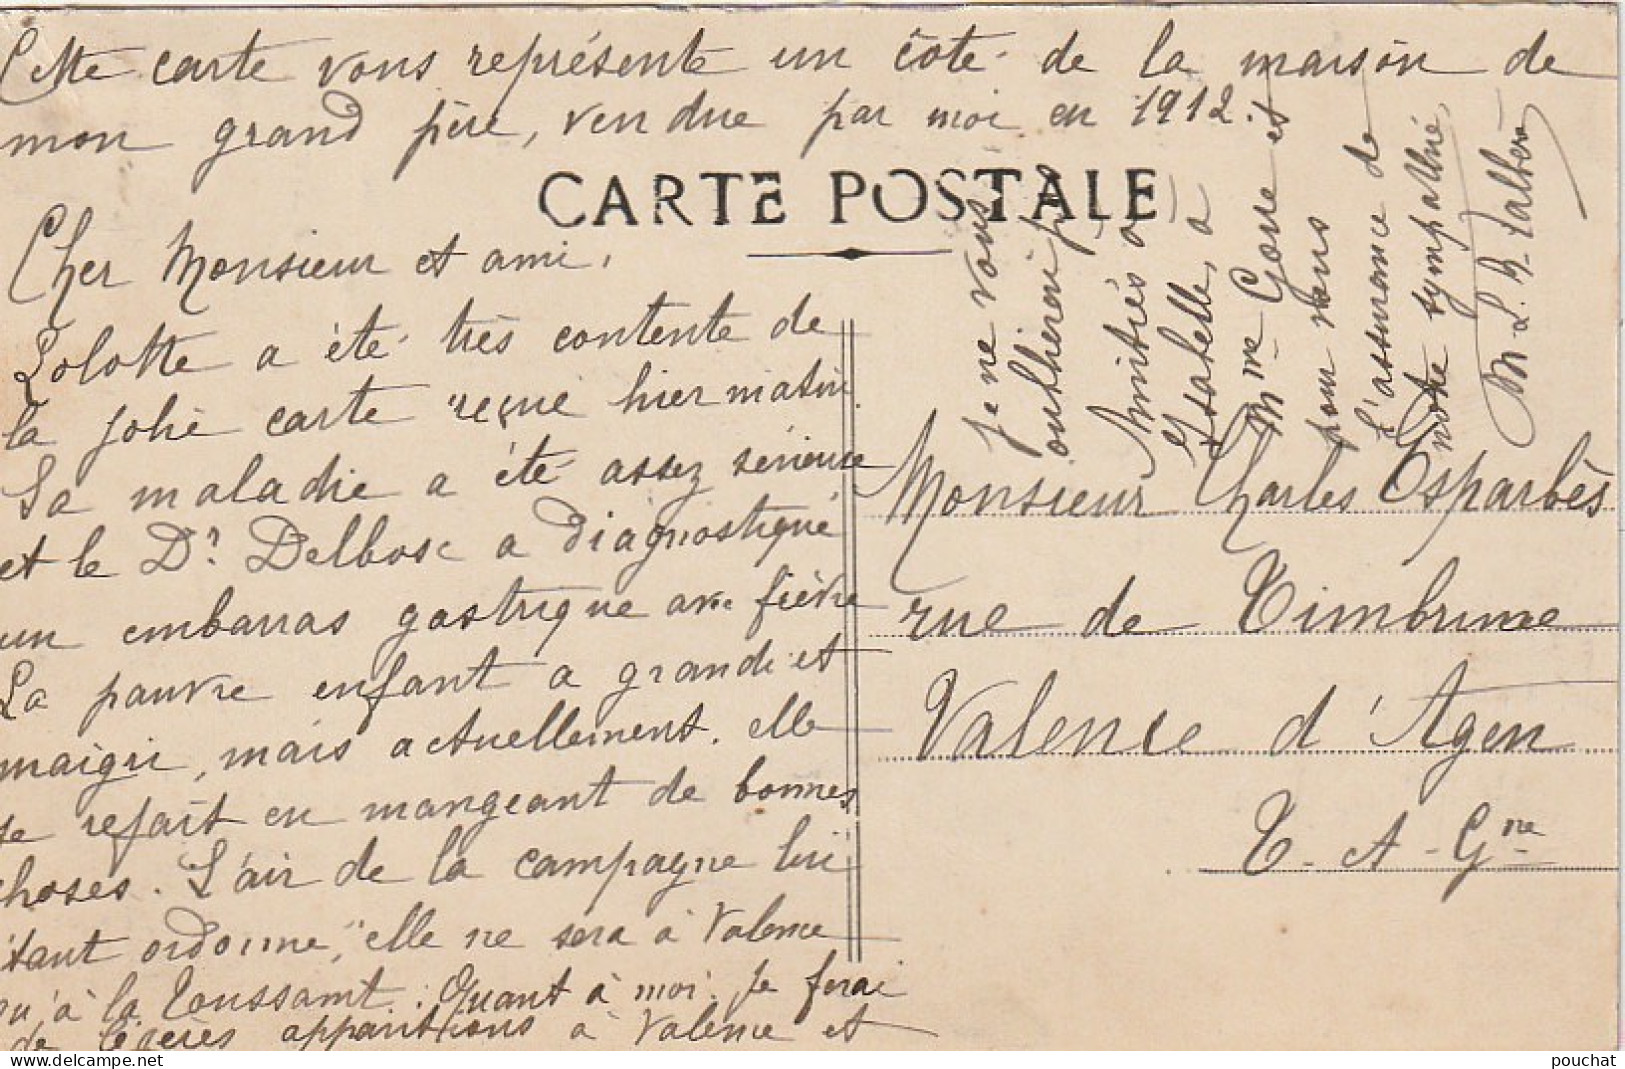 Cette carte vous représente un côté de la maison de
mon grand père, vendue par moi en 1912.
CARTE POSTALE
Cher Monsieur et ami,
Lolotte a été très contente de
la jolie carte reçue hier matin.
Sa maladie a été assez sérieuse
et le Dr Delbosc a diagnostiqué
un embarras gastrique avec fièvre
La pauvre enfant a grandi et
maigri, mais actuellement, elle
se refait en mangeant de bonnes
choses. L'air de la campagne lui
étant ordonné, elle ne sera à Valence
qu'à la Toussaint. Quant à moi, je ferai
de légères apparitions à Valence et
je ne vous
oublierai pas
Amitiés à
Isabelle, à
Mme Gorse et
pour vous
l'assurance de
notre sympathie,
M. L. B.
Monsieur Charles Esparbès
rue de Timbrune
Valence d'Agen
T-et-Gne
www.delcampe.net
pouchat